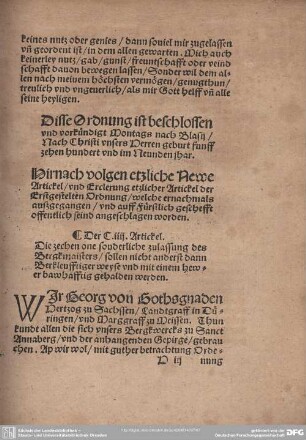 keines nutz oder genies / dann souiel mir zugelassen
vñ geordent ist / in dem allen gewarten. Mich auch
keinerley nutz / gab / gunst / freuntschafft oder veind
schafft dauon bewegen lassen / Sonder wil dem al-
len nach meinem höchsten vermögen / genugthun /
treulich vnd vngeuerlich / als mir Gott helff vñ alle
seine heyligen.
Disse Ordnung ist beschlossen
vnd vorkündigt Montags nach Blasij /
Nach Christi vnsers Herren geburt funff
zehen hundert vnd im Neunden jhar.
Hirnach volgen etzliche Newe
Artickel / vnd Erclerung etzlicher Artickel der
Erstgestelten Ordnung / welche ernachmals
außgegangen / vnd auff Fürstlich geschefft
offentlich seind angeschlagen worden.
¶ Der C.iiij. Artickel.
Die zechen one sonderliche zulassung des
Bergkmeisters / sollen nicht anderst dann
Bergkleufftiger weyse vnd mit einem hew-
er bawhafftig gehalden werden.
WJr Georg von Gothsgnaden
Hertzog zu Sachssen / Landtgraff in Dü-
ringen / vnd Marggraff zu Meissen. Thun
kundt allen die sich vnsers Bergkwercks zu Sanct
Annaberg / vnd der anhengenden Gepirge / gebrau
chen. Ap wir wol / mit guther betrachtung Orde-
nung